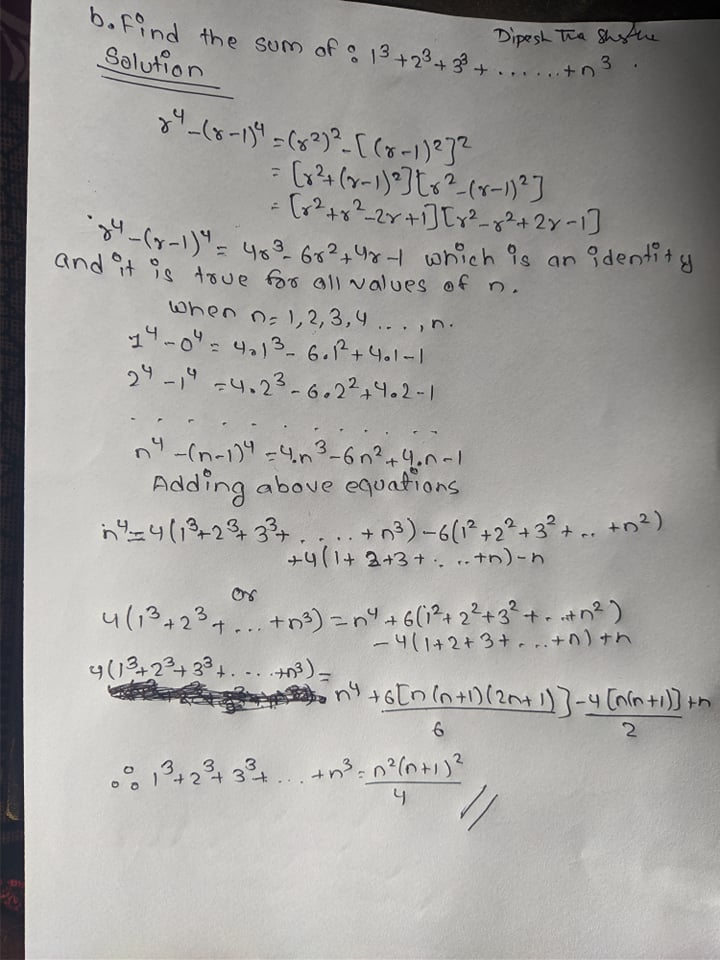 b. Find the sum of : 1³+2³+3³+ ......+n³.
Dipesh
Solution
r⁴-(r-1)⁴ = (r²)²-[(r-1)²]²
= [r²+(r-1)²][r²-(r-1)²]
= [r²+r²-2r+1][r²-r²+2r-1]
r⁴-(r-1)⁴ = 4r³-6r²+4r-1 which is an identity
and it is true for all values of n.
when n= 1,2,3,4 ...,n.
1⁴-0⁴ = 4.1³- 6.1²+4.1-1
2⁴-1⁴ =4.2³-6.2²+4.2-1
. . . . . . . . . . . .
n⁴-(n-1)⁴ =4.n³-6n²+4.n-1
Adding above equations
n⁴=4(1³+2³+3³+ . . . . +n³)-6(1²+2²+3²+ .. +n²)
+4(1+2+3+. ..+n)-n
or
4(1³+2³+...+n³)=n⁴+6(1²+2²+3²+..+n²)
-4(1+2+3+...+n)+n
4(1³+2³+3³+. ...+n³)=
n⁴+6[n(n+1)(2n+1)]-4[n(n+1)]+n
6 2
∴ 1³+2³+3³+ ... +n³=n²(n+1)²
4 //